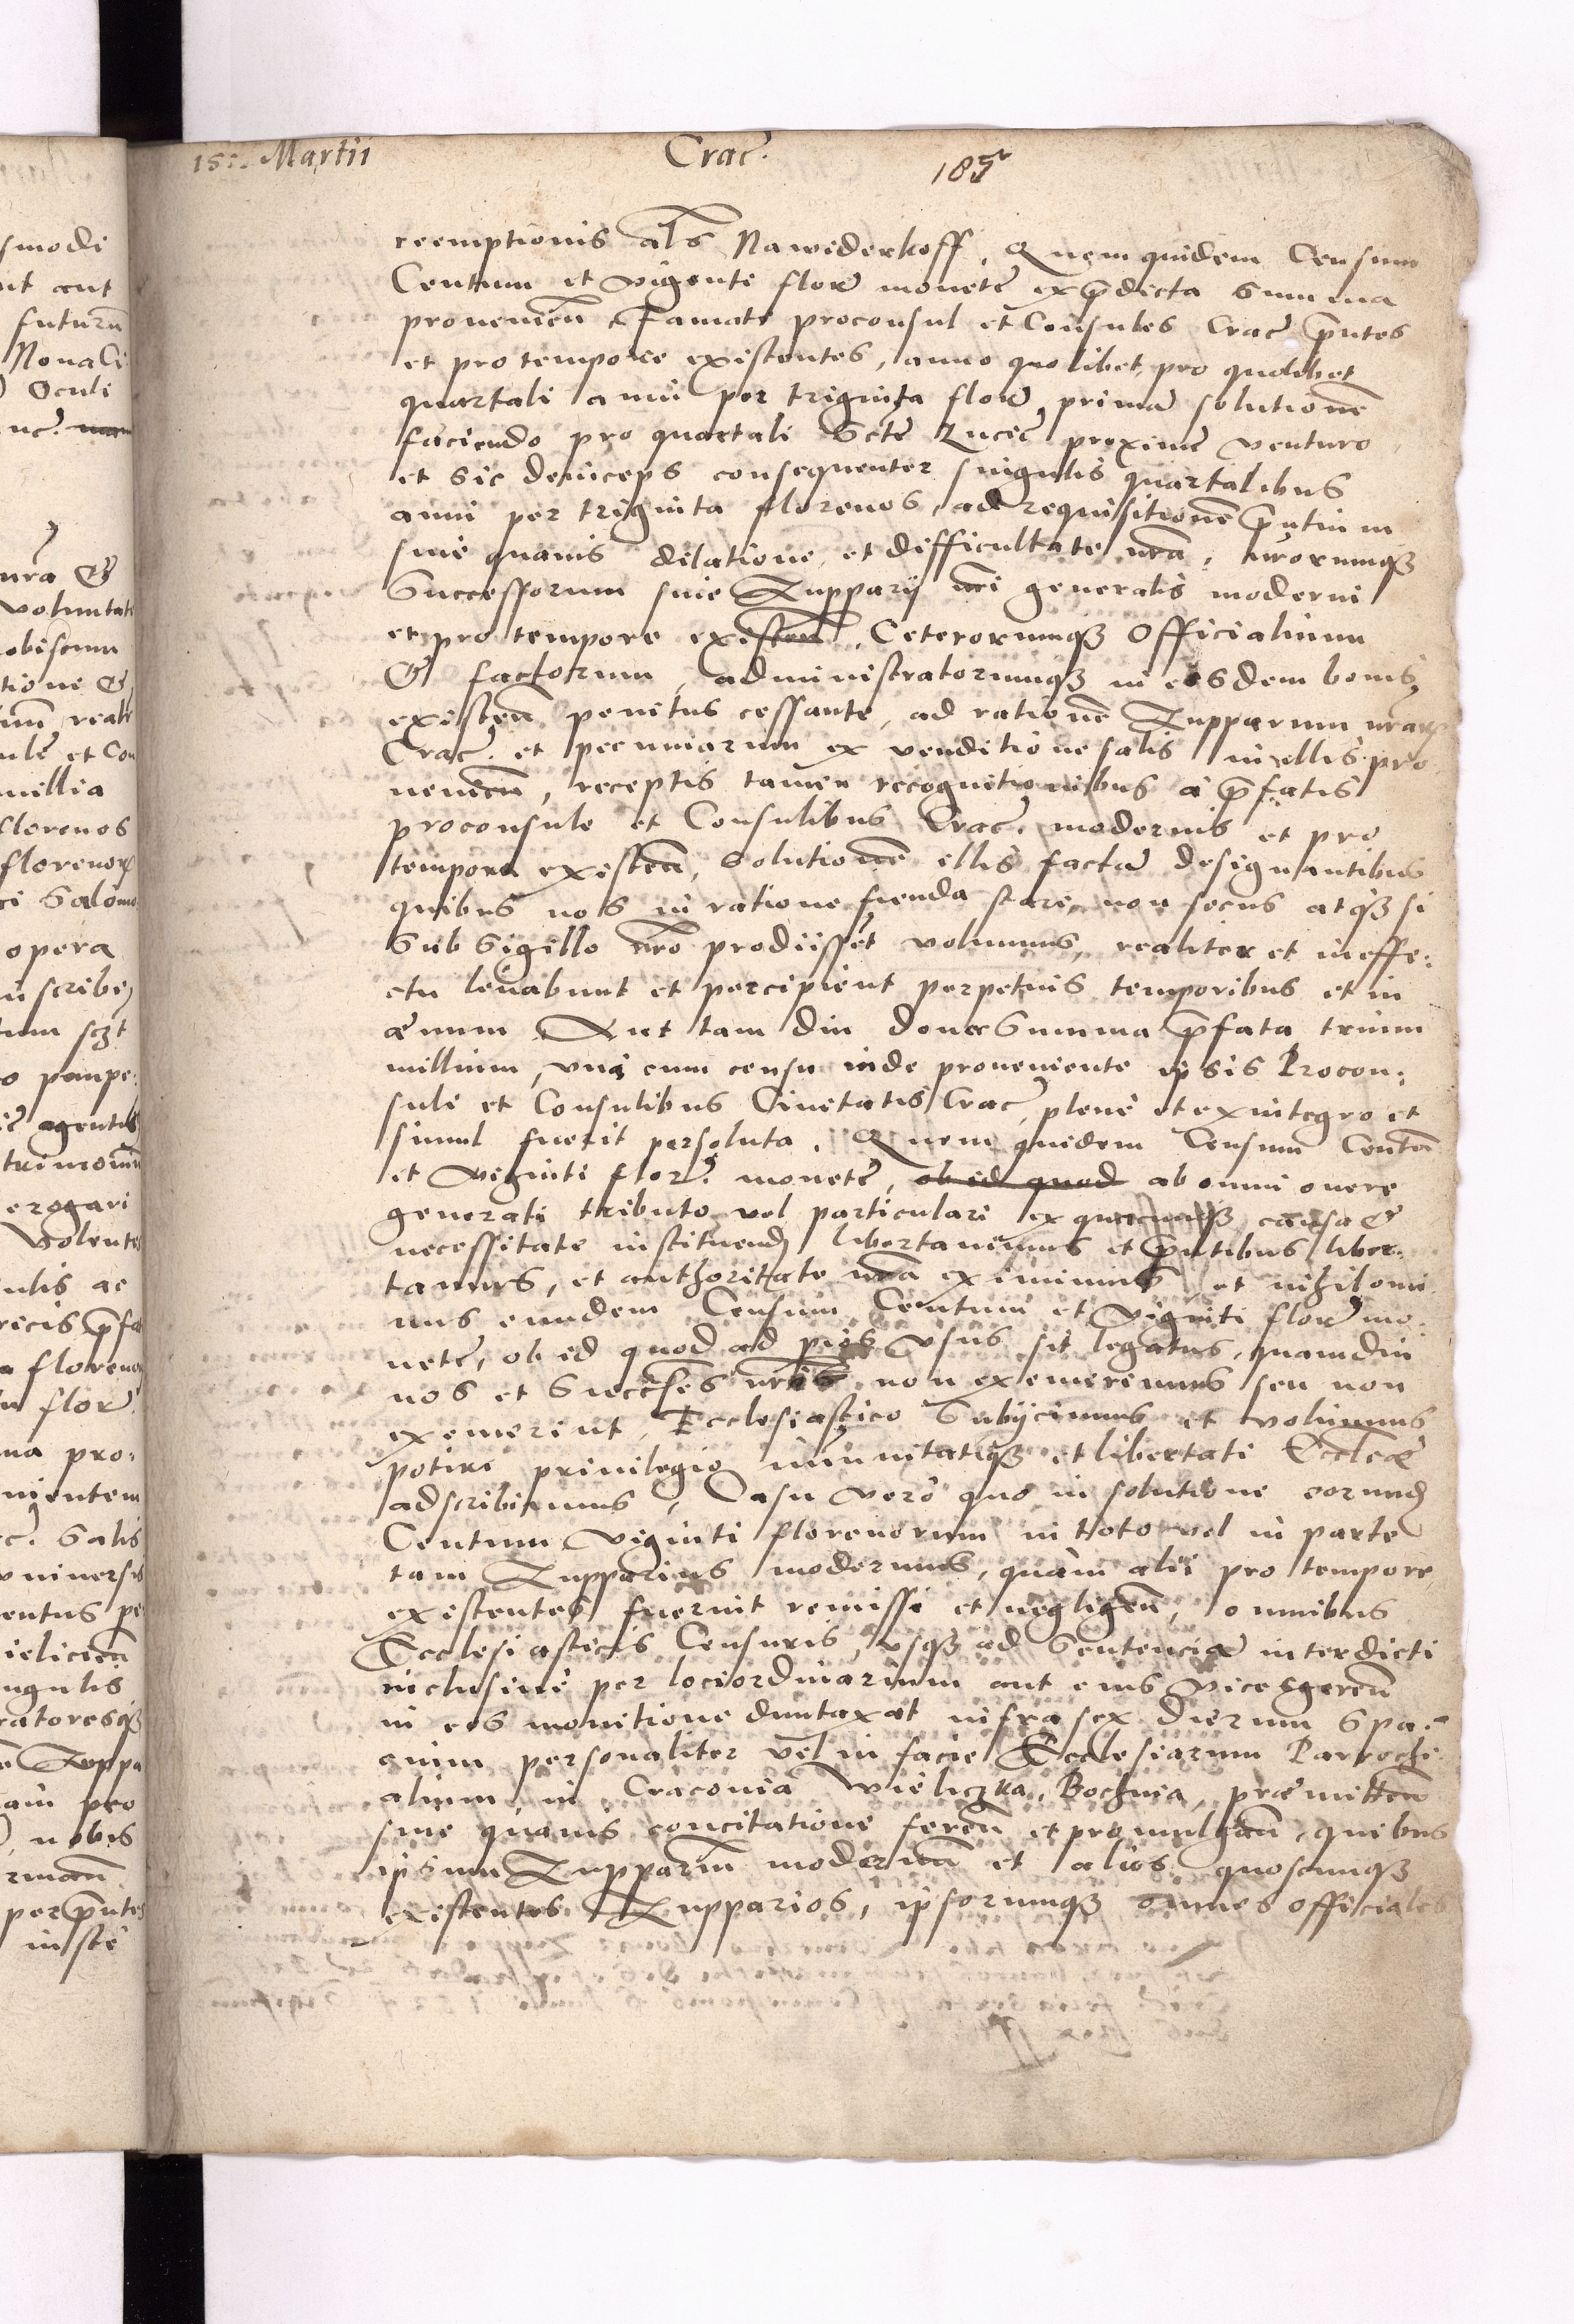 15: Martii Crac. 185
reemptionis als Nawiderkoff. Quem quidem Censum
Centum et viginti flor monete ex prdicta summa
provenien Famati proconsul et Consules Crac pntes
et pro tempore existentes, anno quolibet, pro quolibet
quartali anni per triginta flor, prima solutione
faciendo pro quartali Scte Lucie proxime venturo
et sic deinceps consequenter singulis quartalibus
anni per triginta florenos, ad requisitione pntium
sine quavis dilatione, et difficultate nra, nrorumq
Successorum sive Zupparij nri generalis moderni
et pro tempore existen, Ceterorumq Officialium
& factorum, administratorumq in eisdem bonis
existen penitus cessante, ad ratione Zupparum nrar
Crac. et pecuniarum ex venditione salis in illis pro
venien, receptis tamen recognitionibus a prfatis
proconsule et Consulibus Crac. modernis et pro
tempore existen, solutione illis facta designantibus
quibus nos in ratione fienda stare, non secus atq si
sub Sigillo nro prodiisset volumus, realiter et in effe:
ctu levabunt et percipient perpetuis temporibus et in
ævum Aut tam diu donec Summa prfata trium
millium, una cum censu inde proveniente ipsis Procon:
suli et Consulibus Civitatis Crac, plene et ex integro et
simul fuerit persoluta. Quem quidem Censum Centu
et viginti flor. monete, ob id quod ab omni onere
generali tributo vel particulari ex quacumq causa &
necessitate instituend libertavimus et pntibus liber:
tamus, et authoritate nra eximimus, et nihilomi
nus eundem Censum Centum et viginti flor mo:
nete, ob id quod ad pios usus sit legatus, quamdiu
nos et Succes̃ses nr̃i non exemerimus seu non
exemerint, Ecclesiastico Subijcimus et volumus
potiri privilegio immunitatiq et libertati Eccleæ
adscribimus, Casu vero quo in solutione eorund
Centum Viginti florenorum in toto vel in parte
tam Zupparius modernus, quam alii pro tempore
existentes fuerint remissi et negligen, omnibus
Ecclesiasticis Censuris, usq ad sentencia interdicti
inclusive per loci ordinarium aut eius Vicesgeren
in eos monitione duntaxat infra sex dierum spa:
cium personaliter vel in facie Ecclesiarum Parrochi:
alium in Cracovia Wieliczka, Bochnia, præmitten
sine quavis concitatione feren et promulgan, quibus
ipsum Zupparium modernu et alios quoscumq
existentes Zupparios, ipsorumq omnes officiales